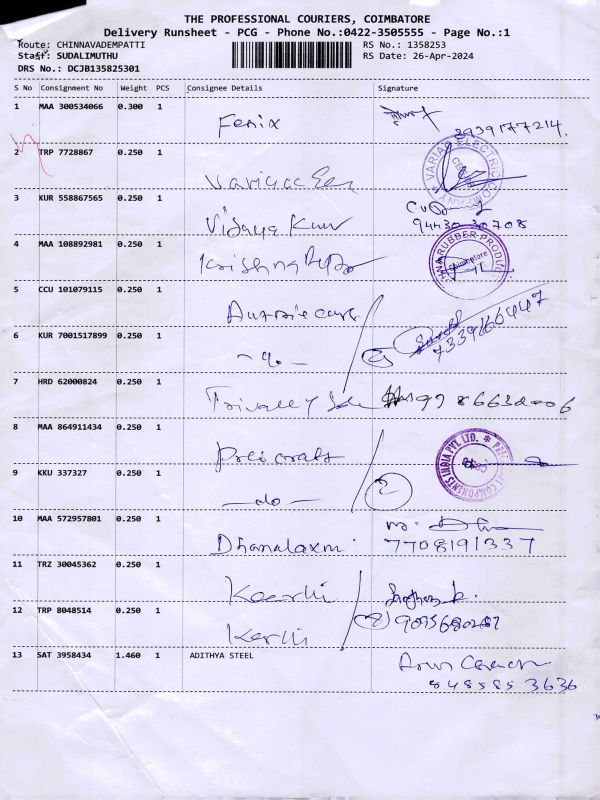 THE PROFESSIONAL COURIERS, COIMBATORE
Delivery Runsheet - PCG - Phone No.:0422-3505555 - Page No.:1
Route: CHINNAVADEMPATTI RS No.: 1358253
Staff: SUDALIMUTHU RS Date: 26-Apr-2024
DRS No.: DCJB135825301
S No Consignment No Weight PCS Consignee Details Signature
1 MAA 300534066 0.300 1
Fenix
3939177214.
2 TRP 7728867 0.250 1
VARIAC ELECTRIC COMPANY
3 KUR 558867565 0.250 1
Vijaya Kumar
94430 30708
4 MAA 108892981 0.250 1
Krishna
RUBBER PRODUC
5 CCU 101079115 0.250 1
Aussie care
6 KUR 7001517899 0.250 1
7339166447
7 HRD 62000824 0.250 1
8 MAA 864911434 0.250 1
COMPONENTS INDIA PVT. LTD.
9 KKU 337327 0.250 1
-do-
2
10 MAA 572957801 0.250 1
Dhanalaxmi
7708191337
11 TRZ 30045362 0.250 1
12 TRP 8048514 0.250 1
(2)
13 SAT 3958434 1.460 1 ADITHYA STEEL
848585 3636